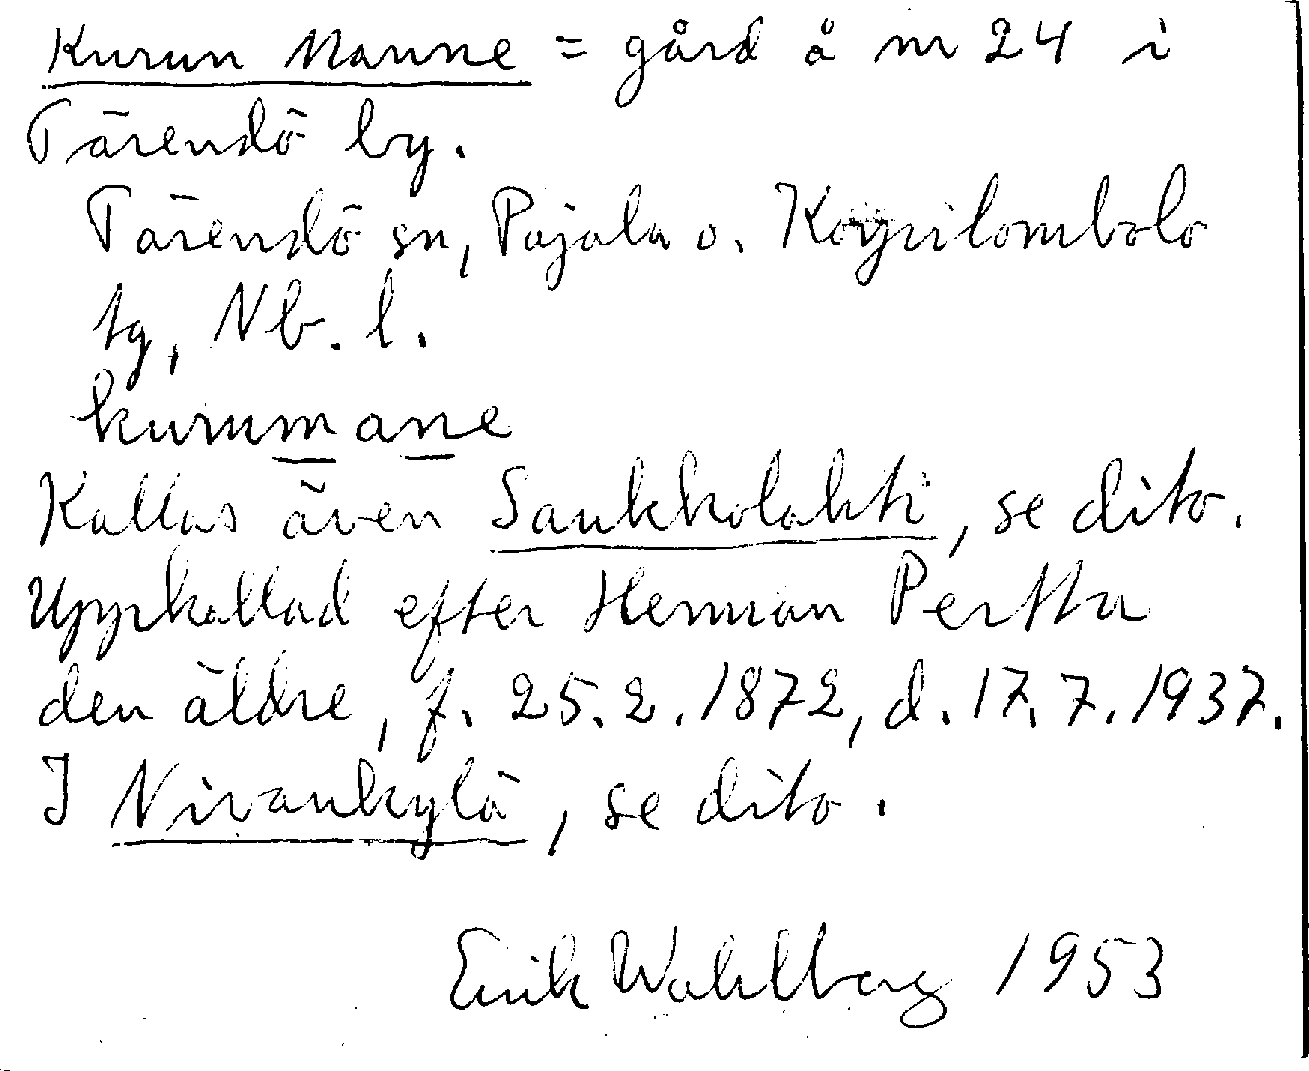 Kurun Manne = gård å nr 24 i
Tärendö by.
Tärendö sn, Pajala o. Korpilombolo
tg, Nb. l.
kurumane
Kallas även Saukkolahti, se dito.
Uppkallad efter Herman Pertta
den äldre, f. 25.2.1872, d. 17.7.1937.
I Nivankylä, se dito.
Erik Wahlberg 1953